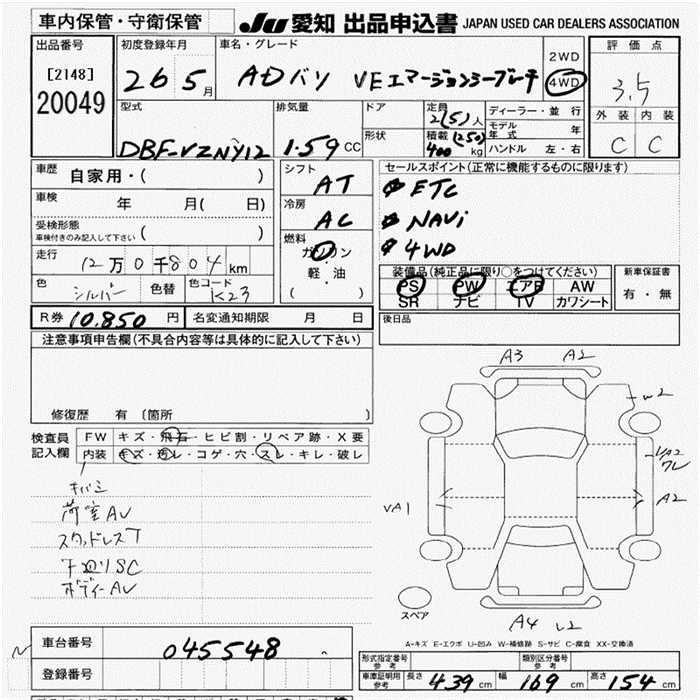 車内保管・守衛保管 JU 愛知 出品申込書 JAPAN USED CAR DEALERS ASSOCIATION
出品番号 初度登録年月 車名・グレード 2WD 評価点
[2148] 26 5月 ADバン VEエマージョンシーブレーキ 4WD 3.5
20049 外装 内装
型式 排気量 ドア 定員 2(5)人 ディーラー・並行 C C
DBF-VZNY12 1.59CC 形状 積載 (250) 400kg モデル年式 年
ハンドル 左・右
車歴 自家用・( ) シフト AT セールスポイント(正常に機能するものに限ります)
車検 年 月( 日) 冷房 AC ETC
受検形態 NAVi
車検付きのみ記入して下さい ( ) 燃料 ガソリン 4WD
走行 12万0千804km 軽・油 装備品(純正品に限り○をつけてください) 新車保証書
色 シルバー 色替 色コード K23 ( ) PS PW エアB AW 有・無
SR ナビ TV カワシート
R券 10.850円 名変通知期限 月 日 後日品
注意事項申告欄(不具合内容等は具体的に記入して下さい)
修復歴 有 〔箇所 〕
検査員記入欄 FW キズ・飛石・ヒビ割・リペア跡・X要
内装 キズ・汚レ・コゲ・穴・スレ・キレ・破レ
キバミ
荷室AU
スタッドレスT
下廻リSC
ボディーAU
A3 A2
W2
A2
VA1
A4
スペア
A-キズ E-エクボ U-凹み W-補修跡 S-サビ C-腐食 XX-交換済
車台番号 045548
登録番号
形式指定番号 参考 類別区分番号 参考
車庫証明用 参考 長さ 439cm 幅 169cm 高さ 154cm